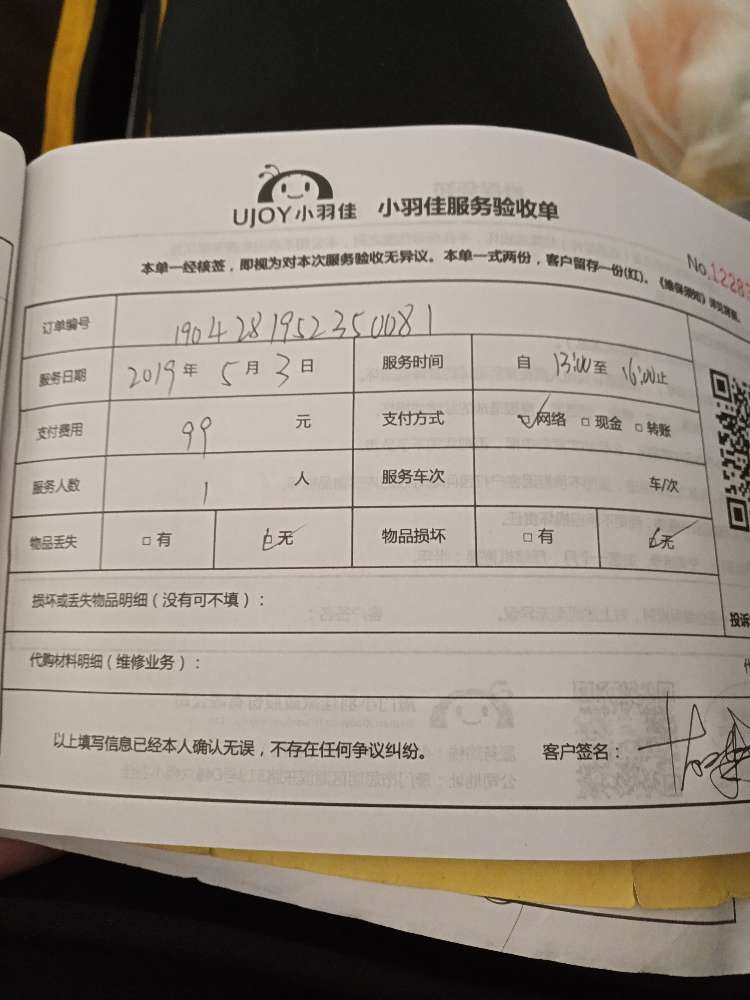 UJOY小羽佳 小羽佳服务验收单
No.12283
本单一经核签，即视为对本次服务验收无异议。本单一式两份，客户留存一份(红)。《维保须知》详见背面。
订单编号 190428195235 0081
服务日期 2019年 5月 3日 服务时间 自 13:00至 16:00止
支付费用 99 元 支付方式 ☑网络 □现金 □转账
服务人数 1 人 服务车次 车/次
物品丢失 □有 ☑无 物品损坏 □有 ☑无
损坏或丢失物品明细（没有可不填）：
投诉
代购材料明细（维修业务）：
以上填写信息已经本人确认无误，不存在任何争议纠纷。 客户签名：